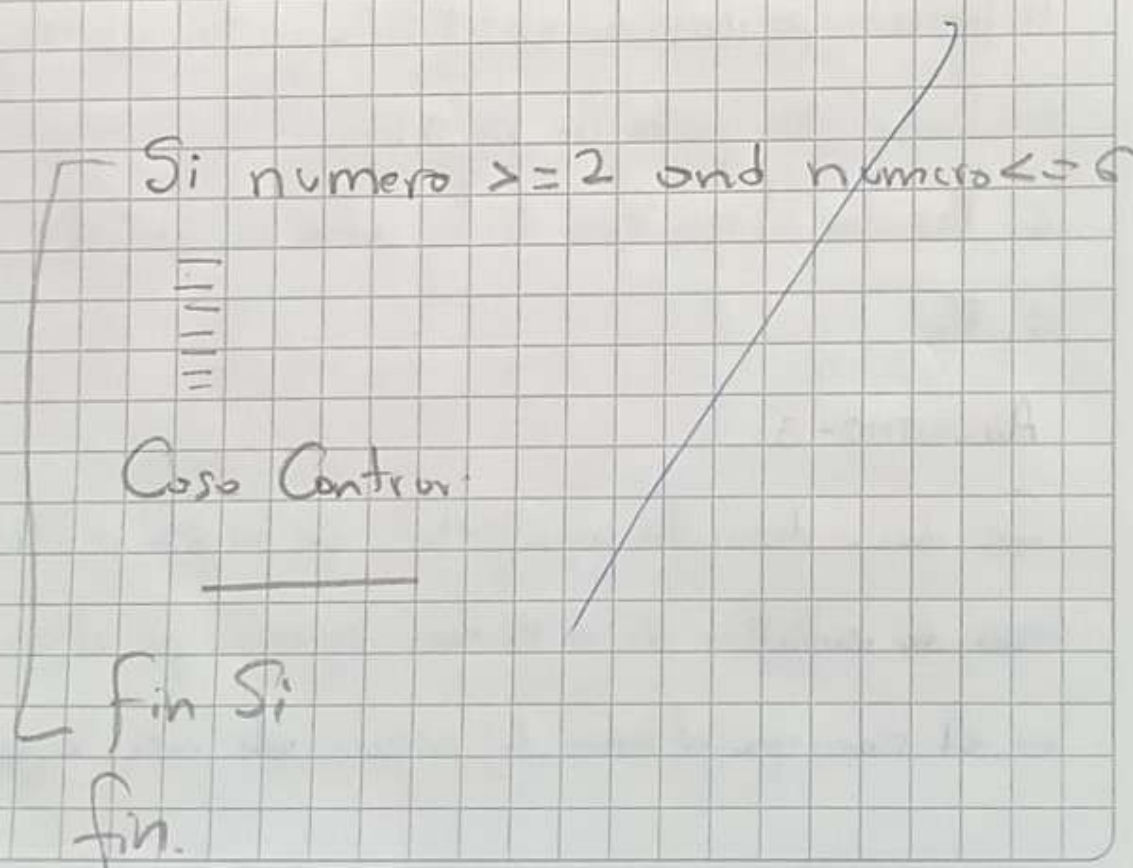 Si numero >= 2 and numero <= 6
Caso Contrar
fin Si
fin.